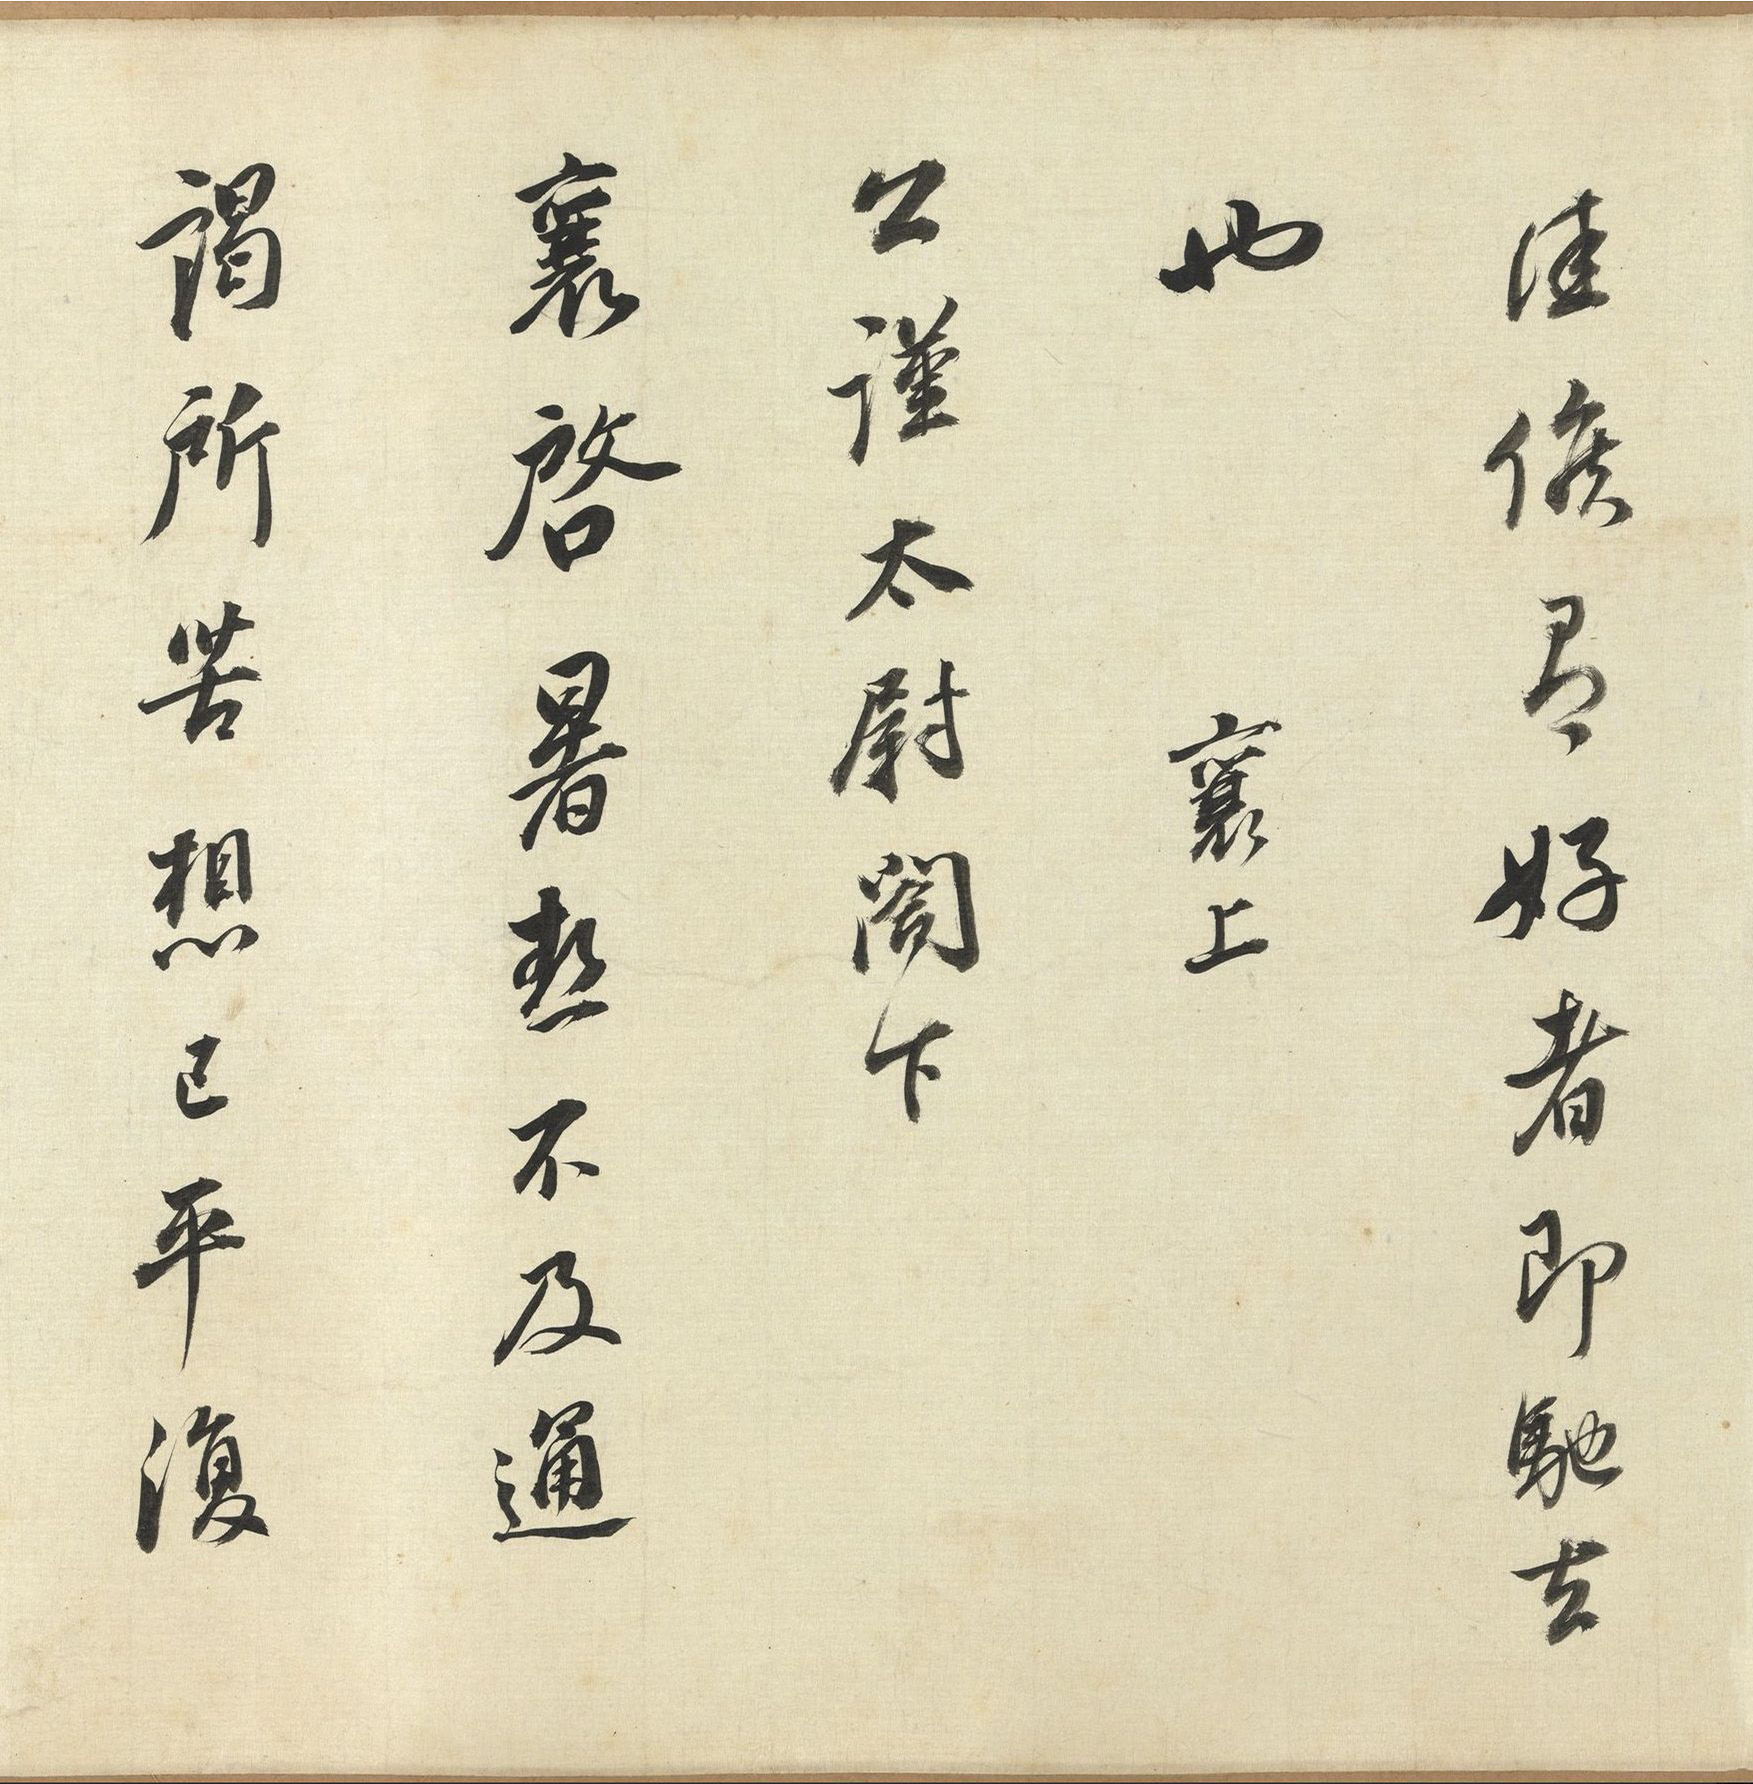 佳候有好者即馳去
也 襄上
公謹太尉閤下
襄啓暑熱不及通
謁所苦想已平復